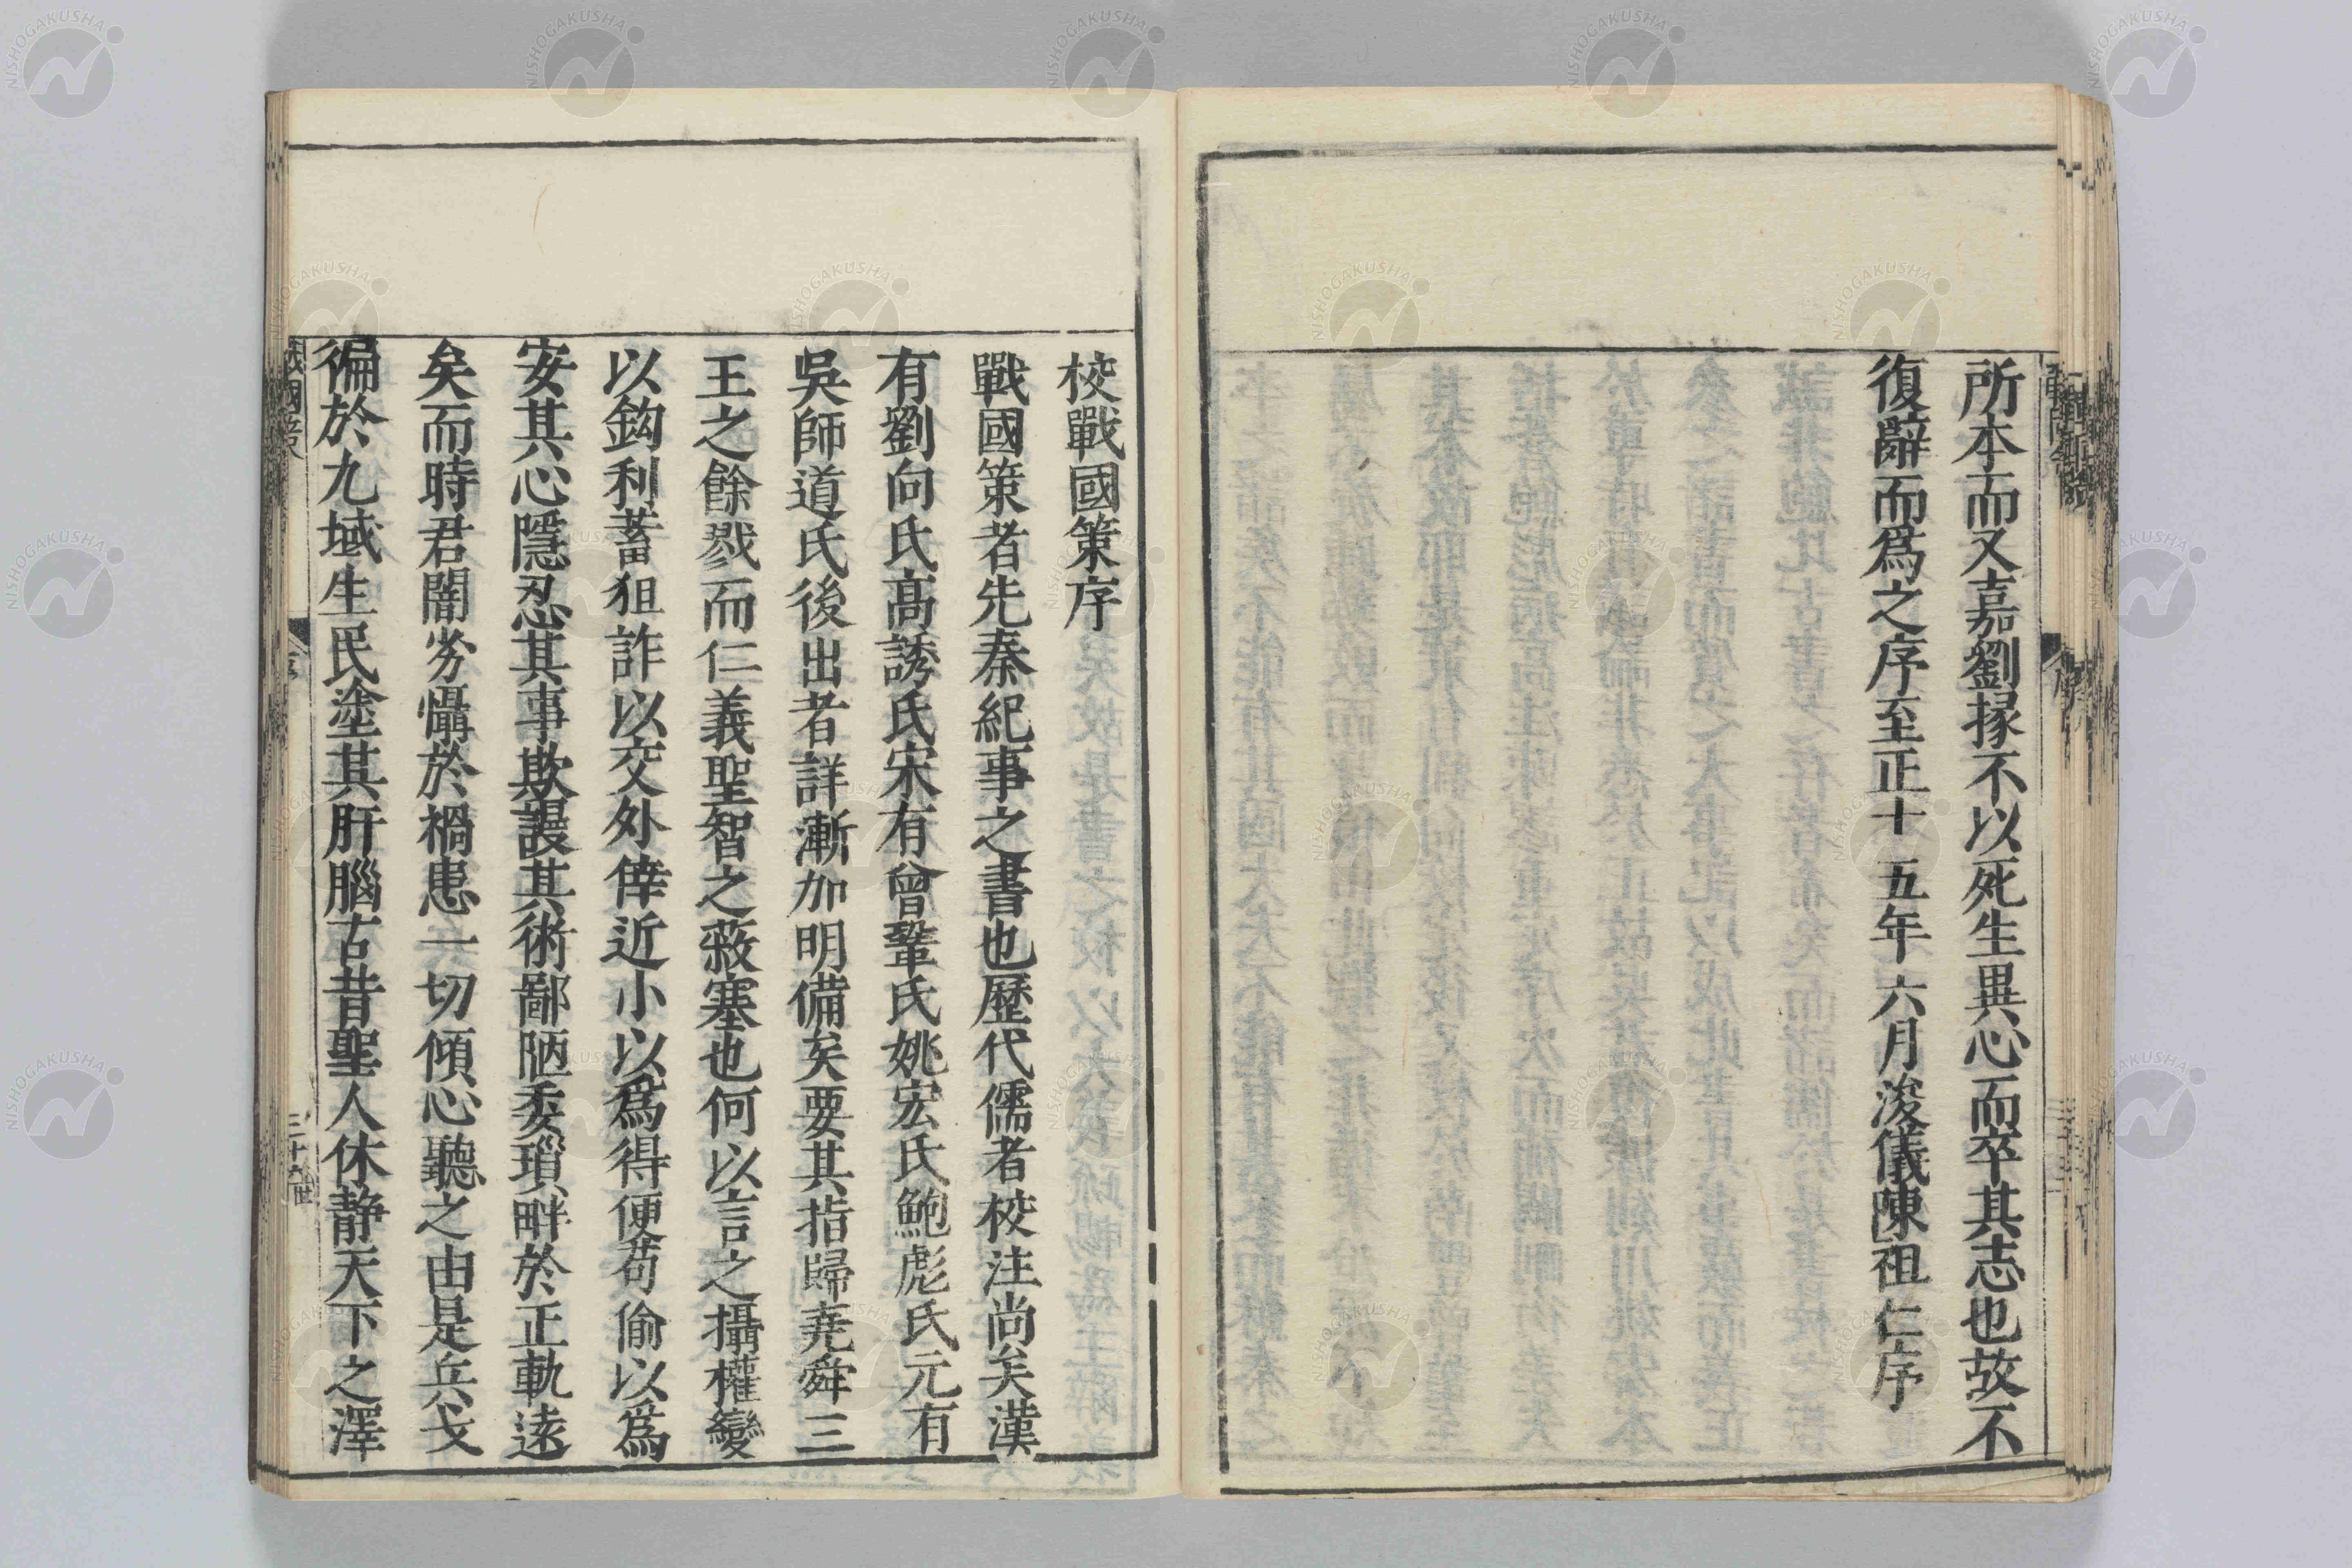 所本而又嘉劉掾不以死生異心而卒其志也故不
復辭而爲之序至正十五年六月浚儀陳祖仁序
校戰國策序
戰國策者先秦紀事之書也歷代儒者校注尚矣漢
有劉向氏高誘氏宋有曾鞏氏姚宏氏鮑彪氏元有
吳師道氏後出者詳漸加明備矣要其指歸堯舜三
王之餘戮而仁義聖智之蔽塞也何以言之攝權變
以鈎利蓄狙詐以交外倖近小以爲得便苟偷以爲
安其心隱忍其事欺謾其術鄙陋委瑣畔於正軌逺
矣而時君闇劣懾於禍患一切傾心聽之由是兵戈
徧於九域生民塗其肝腦古昔聖人休静天下之澤
序
NISHOGAKUSHA